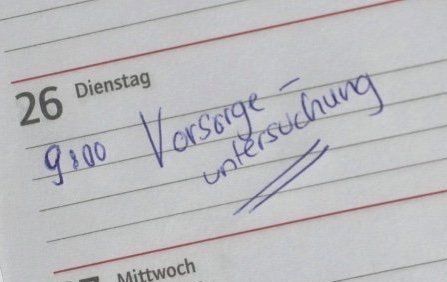 26 Dienstag
9:00 Vorsorge-
untersuchung
Mittwoch